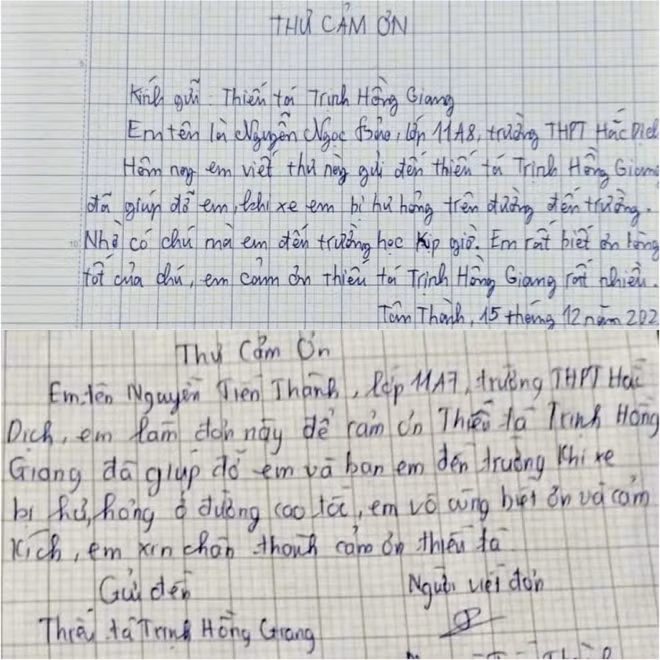 THƯ CẢM ƠN
Kính gửi: Thiếu tá Trịnh Hồng Giang
Em tên là Nguyễn Ngọc Bảo, lớp 11A8, trường THPT Hắc Dịch
Hôm nay em viết thư này gửi đến thiếu tá Trịnh Hồng Giang
đã giúp đỡ em, khi xe em bị hư hỏng trên đường đến trường.
Nhờ có chú mà em đến trường học kịp giờ. Em rất biết ơn lòng
tốt của chú, em cảm ơn thiếu tá Trịnh Hồng Giang rất nhiều.
Tân Thành, 15 tháng 12 năm 202
Thư Cảm Ơn
Em tên Nguyễn Tiến Thành, lớp 11A7, trường THPT Hắc
Dịch, em làm đơn này để cảm ơn Thiếu tá Trịnh Hồng
Giang đã giúp đỡ em và bạn em đến trường khi xe
bị hư, hỏng ở đường cao tốc, em vô cùng biết ơn và cảm
kích, em xin chân thành cảm ơn thiếu tá
Gửi đến Người viết đơn
Thiếu tá Trịnh Hồng Giang